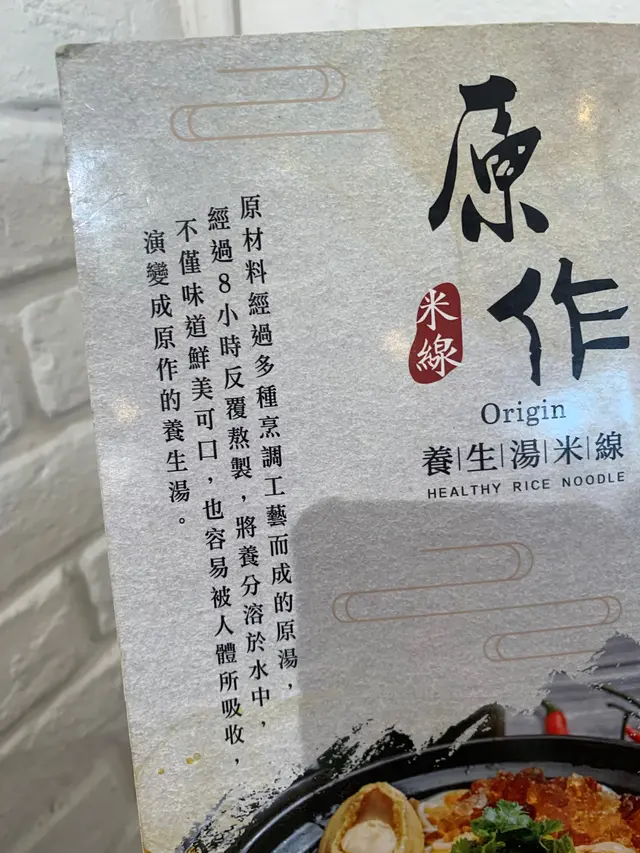 原作
米線
Origin
養生湯米線
HEALTHY RICE NOODLE
原材料經過多種烹調工藝而成的原湯，
經過8小時反覆熬製，將養分溶於水中，
不僅味道鮮美可口，也容易被人體所吸收，
演變成原作的養生湯。